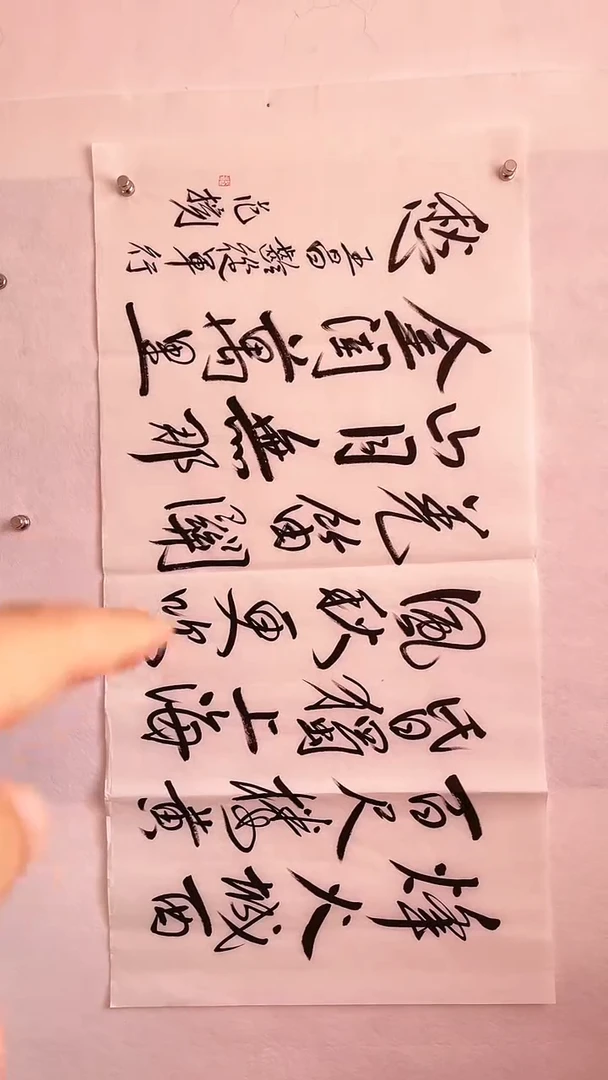 烽火城西
百尺樓黃
昏獨上海
風秋更吹
羌笛關
山月無那
金閨萬里
愁
王昌齡從軍行